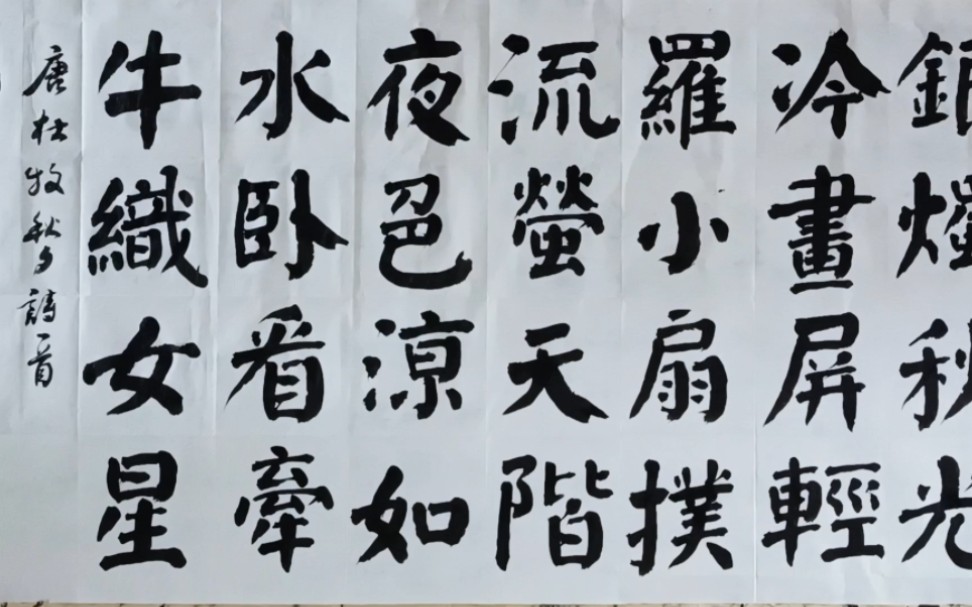 銀燭秋光
冷畫屏輕
羅小扇撲
流螢天階
夜色涼如
水卧看牽
牛織女星
唐杜牧秋夕詩一首